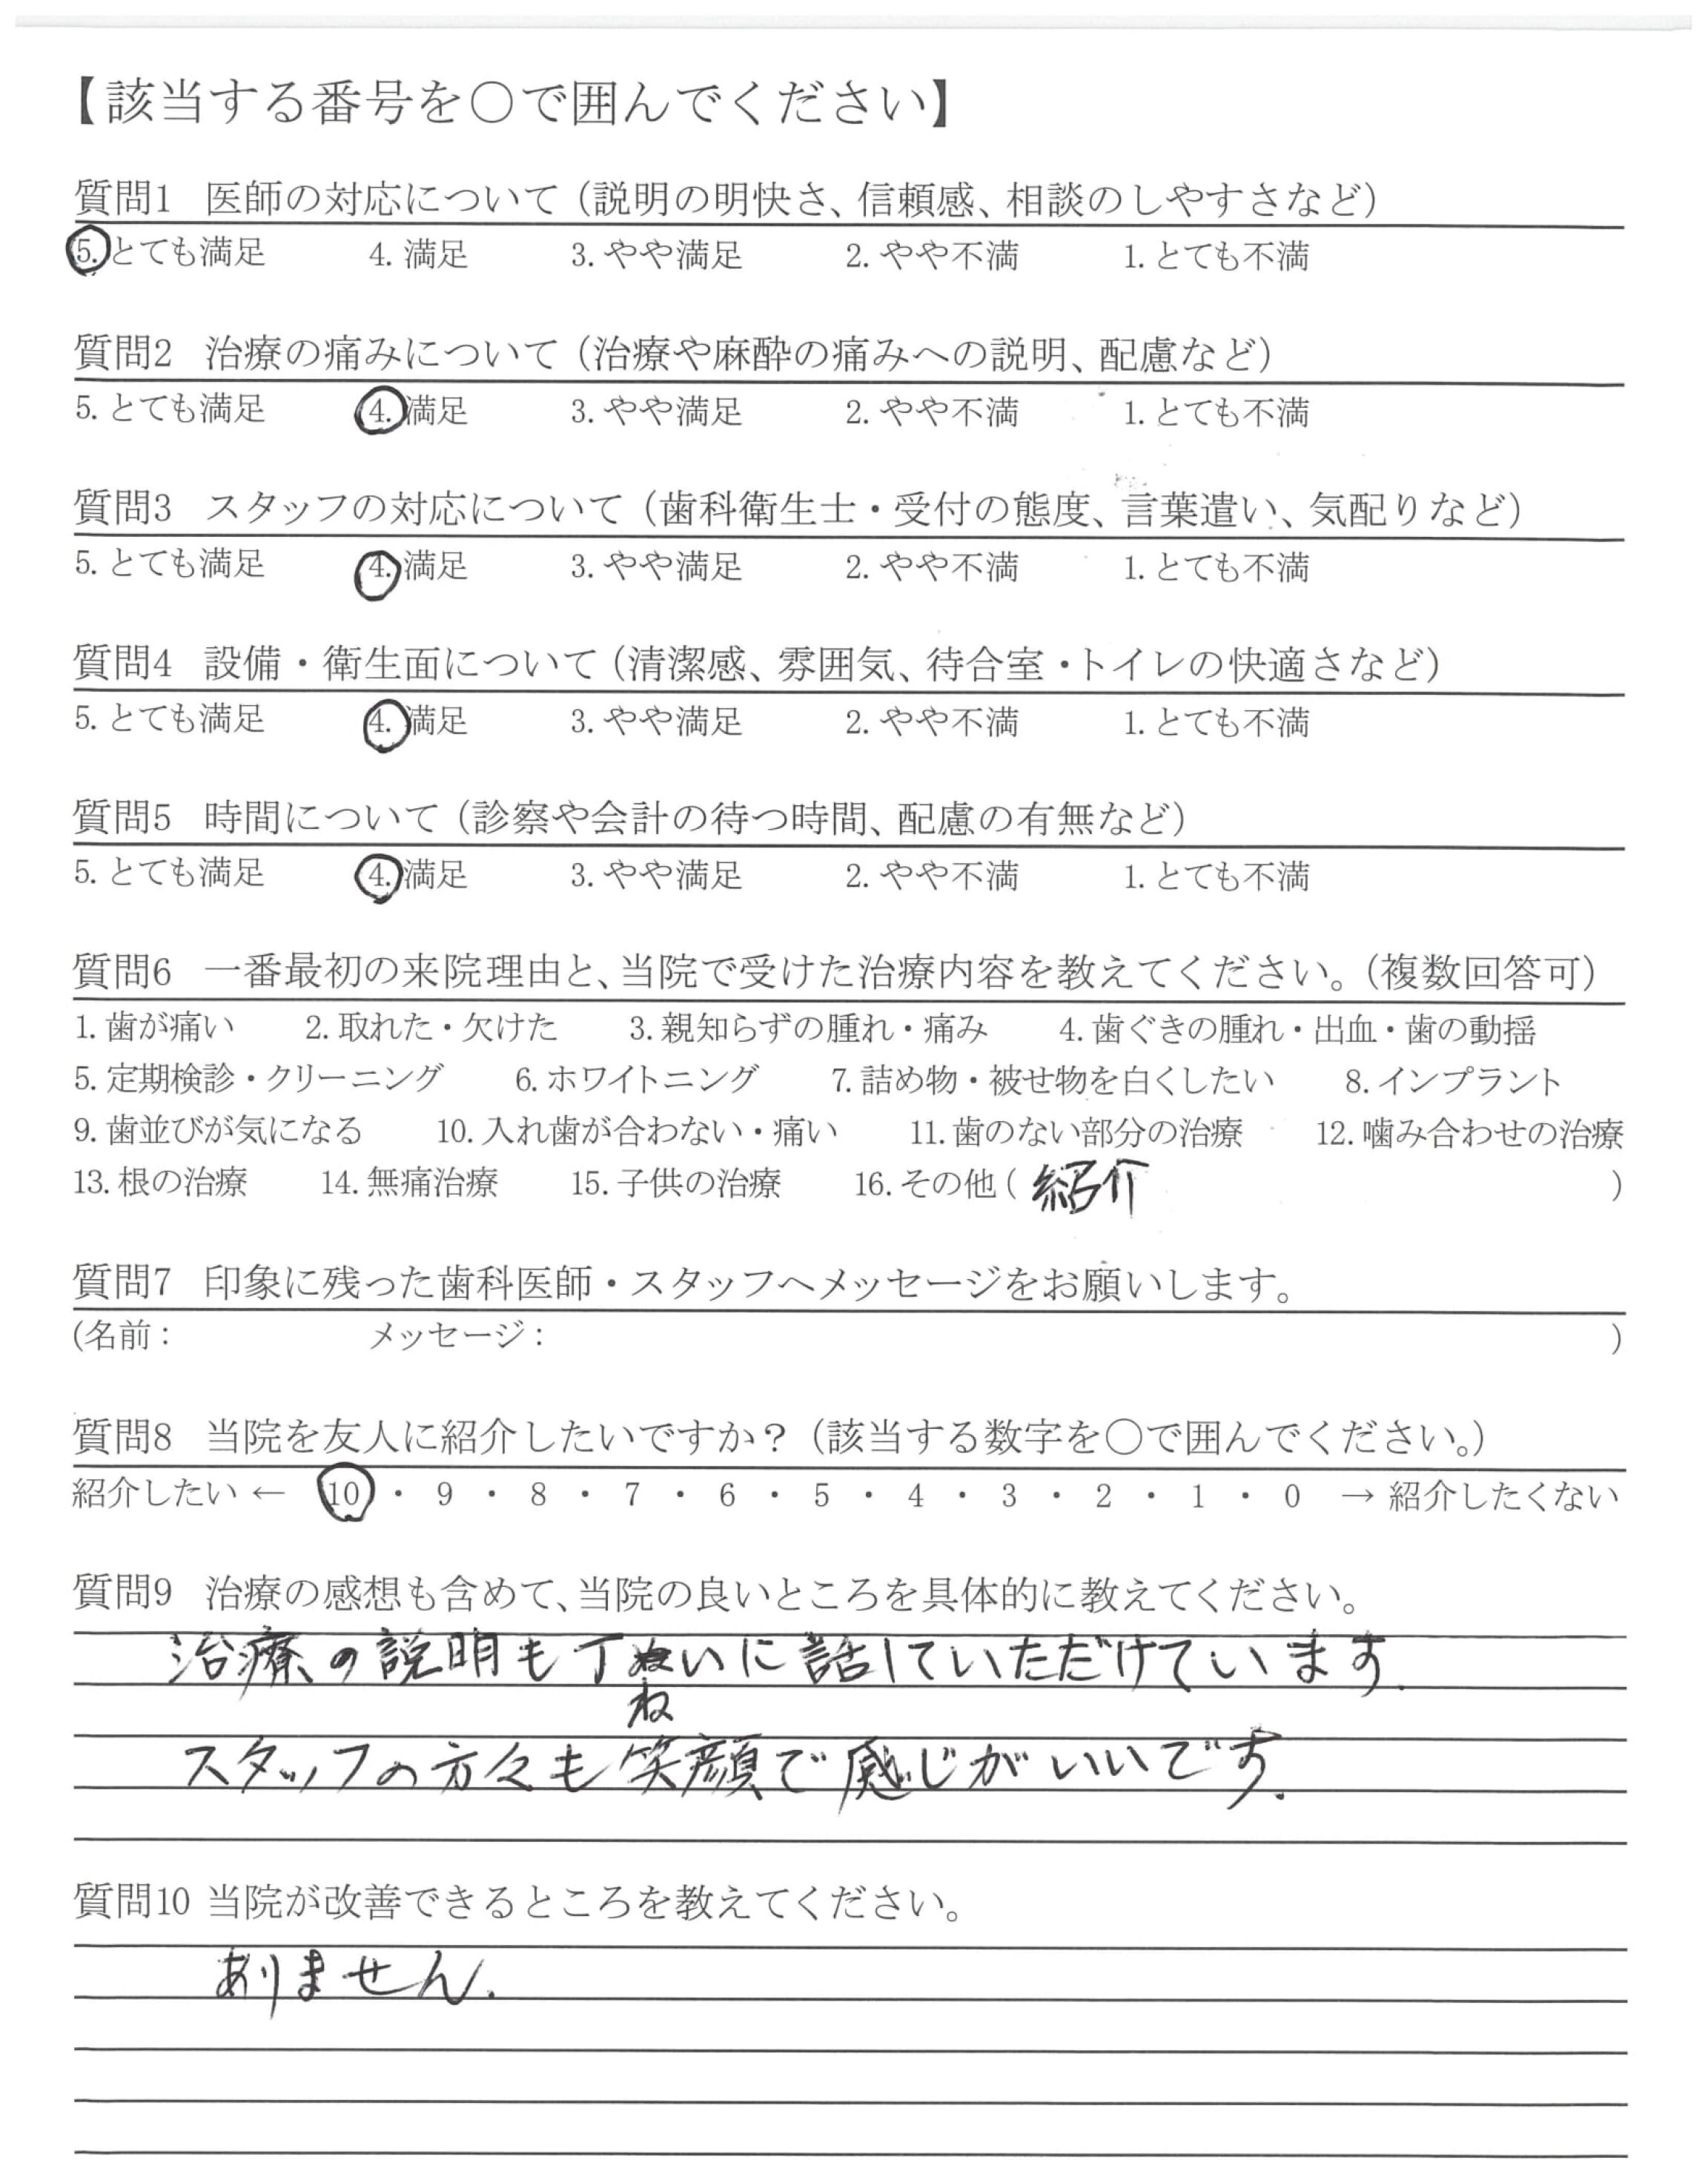 【該当する番号を〇で囲んでください】
質問1 医師の対応について（説明の明快さ、信頼感、相談のしやすさなど）
5. とても満足 4. 満足 3. やや満足 2. やや不満 1. とても不満
質問2 治療の痛みについて（治療や麻酔の痛みへの説明、配慮など）
5. とても満足 4. 満足 3. やや満足 2. やや不満 1. とても不満
質問3 スタッフの対応について（歯科衛生士・受付の態度、言葉遣い、気配りなど）
5. とても満足 4. 満足 3. やや満足 2. やや不満 1. とても不満
質問4 設備・衛生面について（清潔感、雰囲気、待合室・トイレの快適さなど）
5. とても満足 4. 満足 3. やや満足 2. やや不満 1. とても不満
質問5 時間について（診察や会計の待つ時間、配慮の有無など）
5. とても満足 4. 満足 3. やや満足 2. やや不満 1. とても不満
質問6 一番最初の来院理由と、当院で受けた治療内容を教えてください。（複数回答可）
1. 歯が痛い 2. 取れた・欠けた 3. 親知らずの腫れ・痛み 4. 歯ぐきの腫れ・出血・歯の動揺
5. 定期検診・クリーニング 6. ホワイトニング 7. 詰め物・被せ物を白くしたい 8. インプラント
9. 歯並びが気になる 10. 入れ歯が合わない・痛い 11. 歯のない部分の治療 12. 噛み合わせの治療
13. 根の治療 14. 無痛治療 15. 子供の治療 16. その他（ 紹介 ）
質問7 印象に残った歯科医師・スタッフへメッセージをお願いします。
（名前： メッセージ： ）
質問8 当院を友人に紹介したいですか？（該当する数字を〇で囲んでください。）
紹介したい ← 10 ・ 9 ・ 8 ・ 7 ・ 6 ・ 5 ・ 4 ・ 3 ・ 2 ・ 1 ・ 0 → 紹介したくない
質問9 治療の感想も含めて、当院の良いところを具体的に教えてください。
治療の説明も丁ねいに話していただけています.
スタッフの方々も笑顔で感じがいいです.
質問10 当院が改善できるところを教えてください。
ありません.